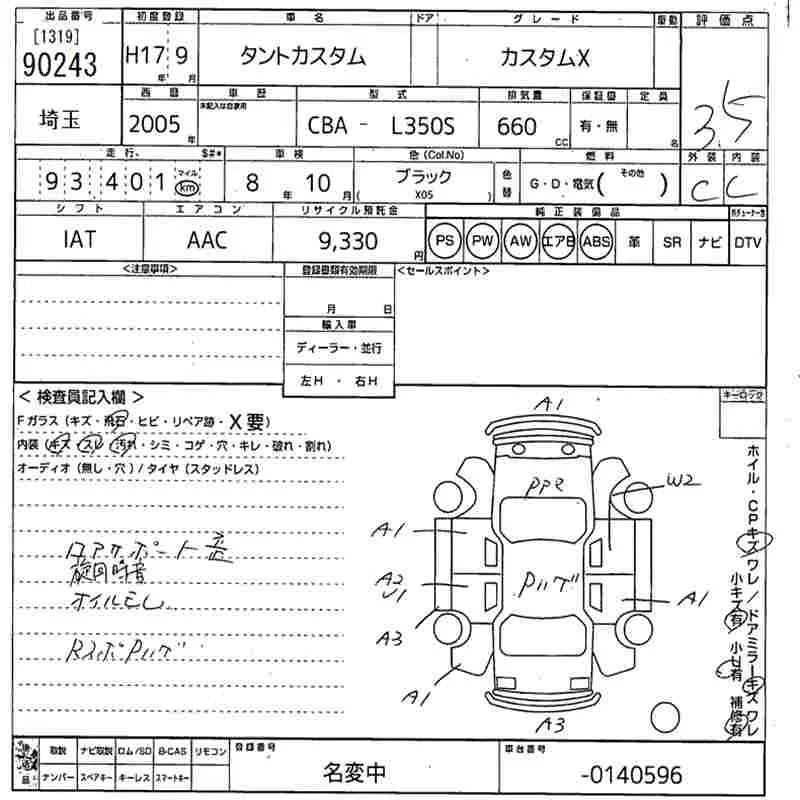 出品番号 初度登録 車名 ドア グレード 車歴 評価点
[1319]
90243 H17年 9月 タントカスタム カスタムX 3.5
西暦 車歴 型式 排気量 保証書 定員
未記入は自家用
埼玉 2005年 CBA - L350S 660CC 有・無 名
走行 $#* 車検 色(Col.No) 燃料 外装 内装
93,401 マイル km 8年 10月 ブラック ( X05 ) 色替 G・D・電気(その他) C C
シフト エアコン リサイクル預託金 純正装備品
IAT AAC 9,330円 PS PW AW エアB ABS 革 SR ナビ DTV
<注意事項> 登録書類有効期限 <セールスポイント>
月 日
輸入車
ディーラー・並行
左H ・ 右H
<検査員記入欄> キーロック
Fガラス(キズ・飛石・ヒビ・リペア跡・X要)
内装(キズ・スレ・汚れ・シミ・コゲ・穴・キレ・破れ・割れ)
オーディオ(無し・穴)/タイヤ(スタッドレス)
旋回時音
オイルモレ
A1
PPP
W2
A1
A2
U1
A1
A3
A1
A3
ホイル・CPキズワレ/ドアミラーキズワレ
小キズ有 小U有 補修有
後送品 取説 ナビ取説 ロム/SD B-CAS リモコン 登録番号 車台番号
ナンバー スペアキー キーレス スマートキー 名変中 -0140596